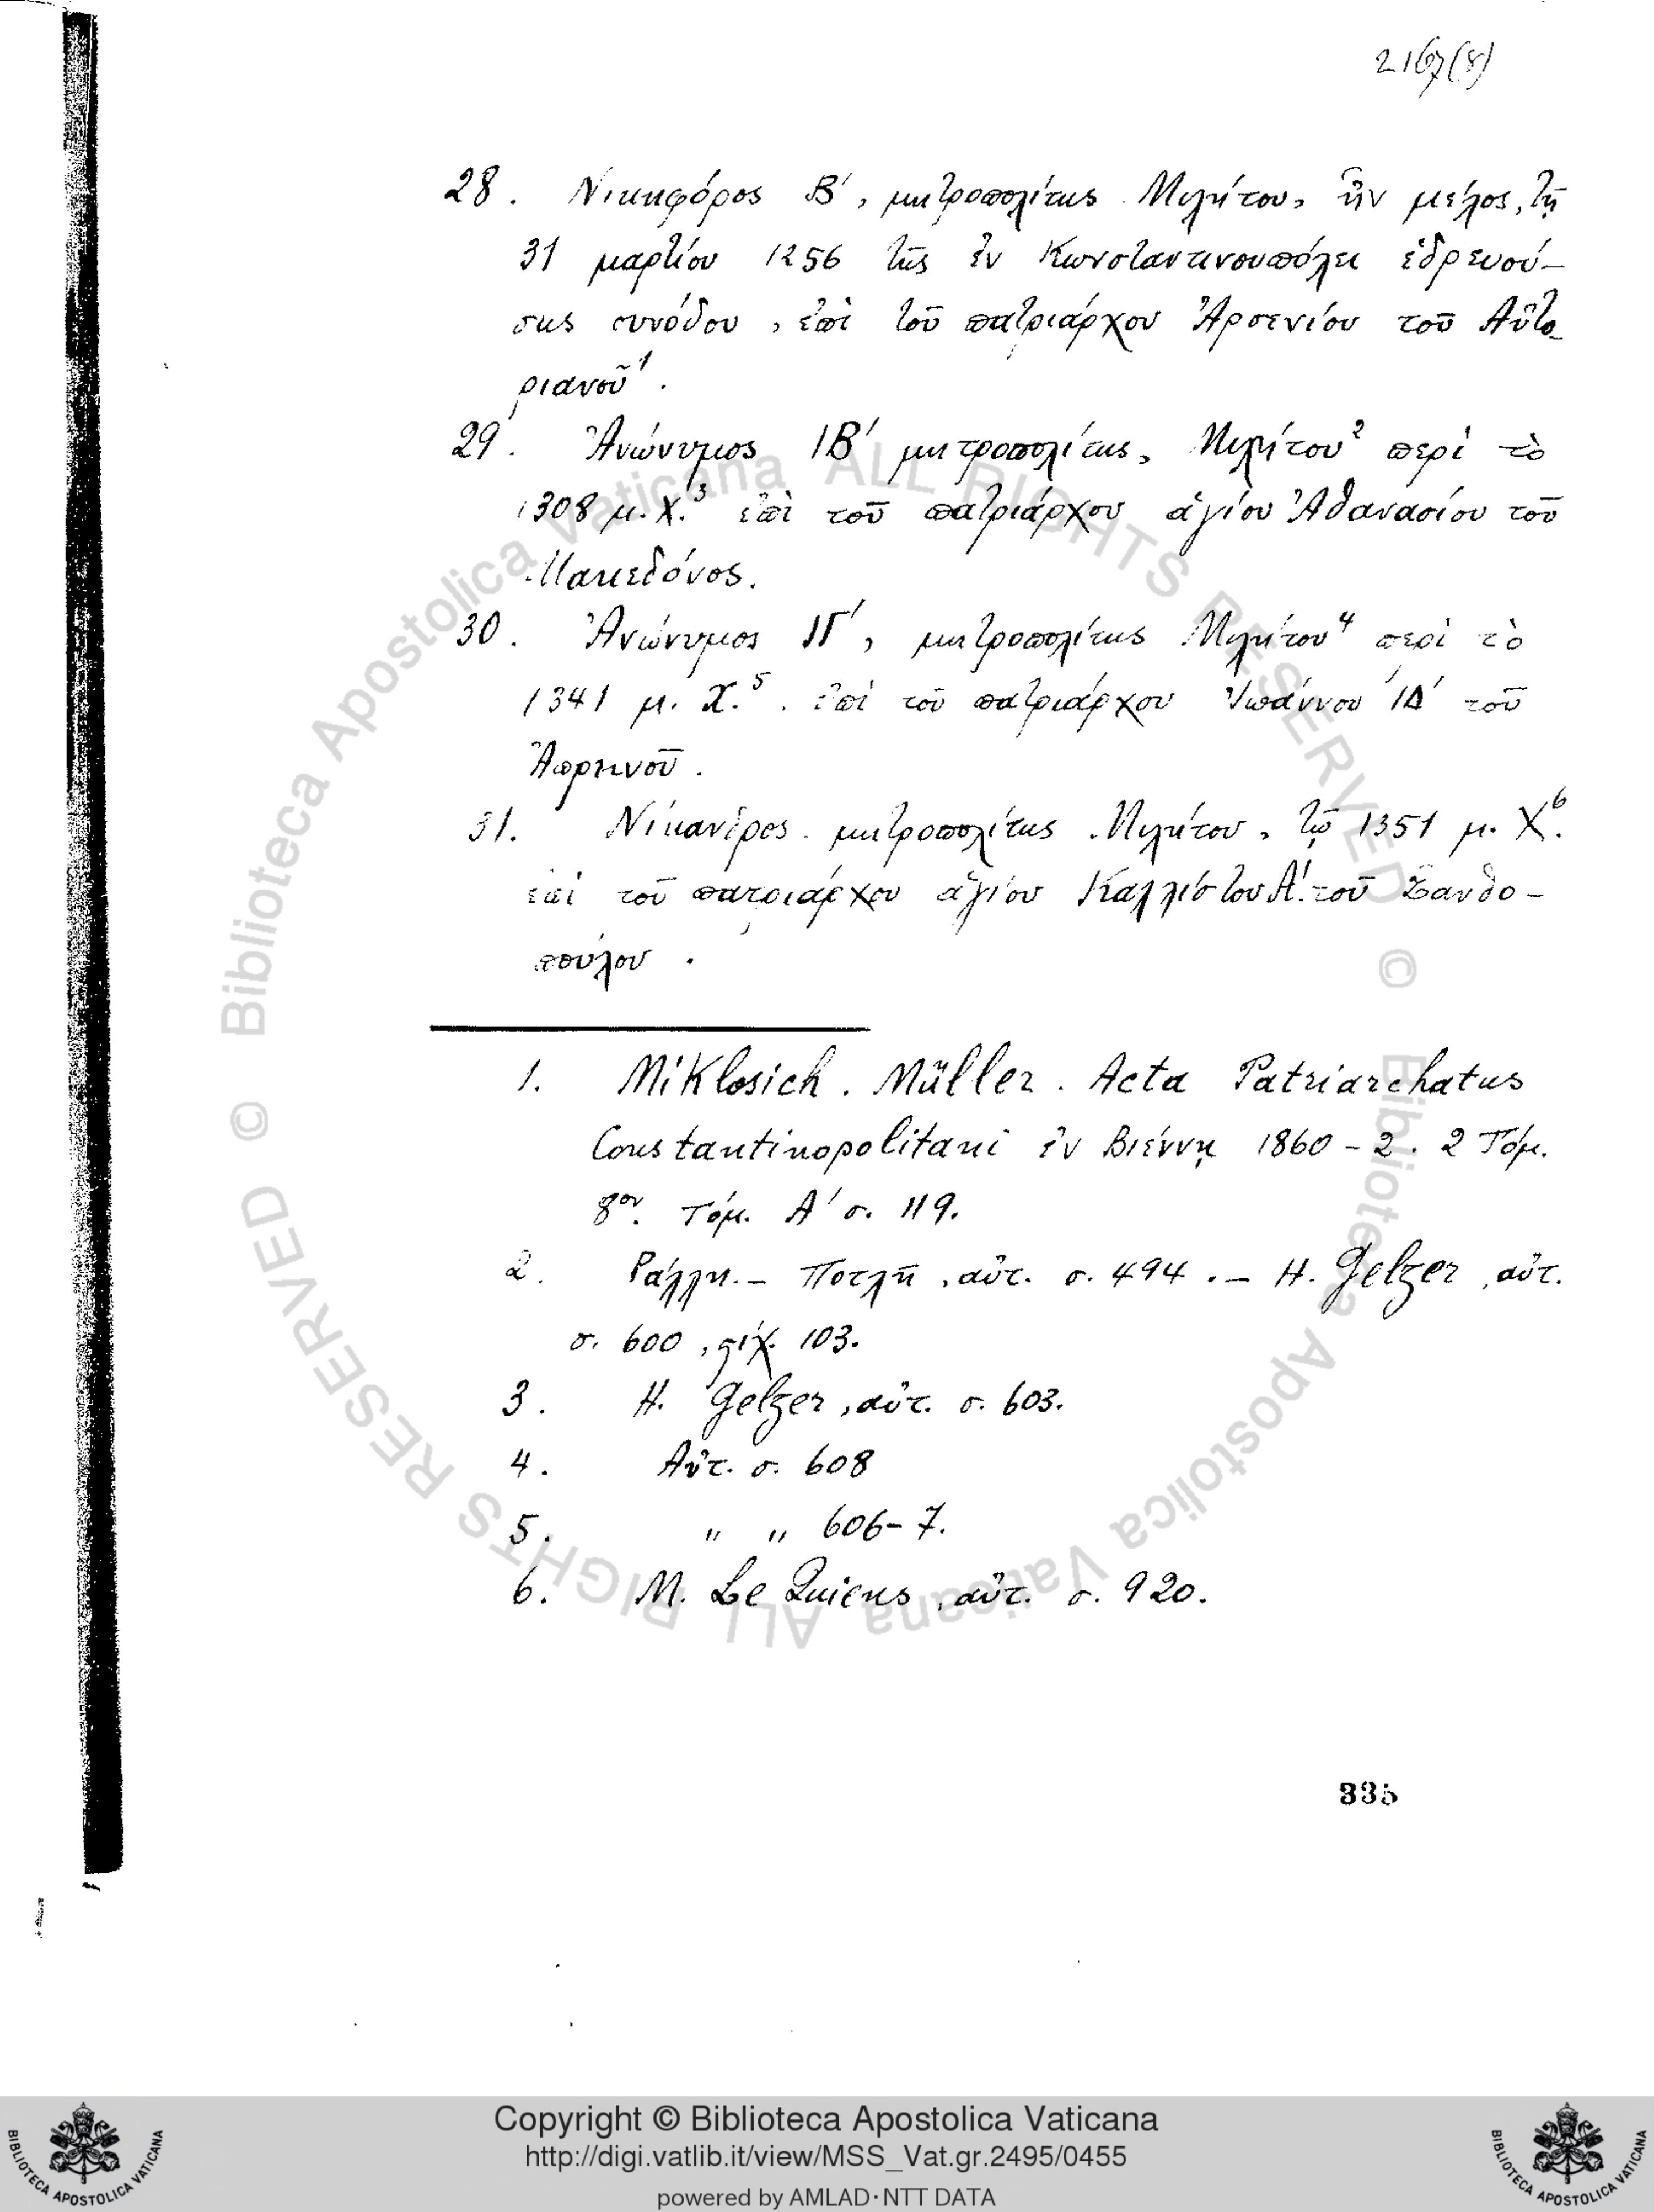 2167(8)
28. Νικηφόρος Β΄, μητροπολίτης Μιλήτου, ἦν μέλος, τῇ
31 μαρτίου 1256 τῆς ἐν Κωνσταντινουπόλει ἑδρευού-
σης συνόδου, ἐπὶ τοῦ πατριάρχου Ἀρσενίου τοῦ Αὐτω-
ριανοῦ¹.
29. Ἀνώνυμος ΙΒ΄ μητροπολίτης, Μιλήτου² περὶ τὸ
1308 μ. Χ.³ ἐπὶ τοῦ πατριάρχου ἁγίου Ἀθανασίου τοῦ
Μακεδόνος.
30. Ἀνώνυμος ΙΓ΄, μητροπολίτης Μιλήτου⁴ περὶ τὸ
1341 μ. Χ.⁵. ἐπὶ τοῦ πατριάρχου Ἰωάννου ΙΔ΄ τοῦ
Ἀπρηνοῦ.
31. Νίκανδρος μητροπολίτης Μιλήτου, τῷ 1351 μ. Χ⁶.
ἐπὶ τοῦ πατριάρχου ἁγίου Καλλίστου Α΄. τοῦ Ξανθο-
πούλου.
1. Miklosich. Müller. Acta Patriarchatus
Constantinopolitani ἐν Βιέννῃ 1860-2. 2 Τόμ.
8ον. Τόμ. Α΄ σ. 119.
2. Ράλλη.- Ποτλῆ, αὐτ. σ. 494.- H. Gelzer, αὐτ.
σ. 600, στίχ. 103.
3. H. Gelzer, αὐτ. σ. 603.
4. Αὐτ. σ. 608
5. " " 606-7.
6. M. Le Quiens, αὐτ. σ. 920.
335
© Biblioteca Apostolica Vaticana ALL RIGHTS RESERVED
© Biblioteca Apostolica Vaticana ALL RIGHTS RESERVED
BIBLIOTECA APOSTOLICA VATICANA
Copyright © Biblioteca Apostolica Vaticana
http://digi.vatlib.it/view/MSS_Vat.gr.2495/0455
powered by AMLAD·NTT DATA
BIBLIOTECA APOSTOLICA VATICANA